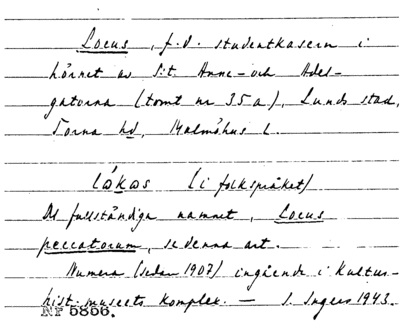 Locus, f.d. studentkasern i
hörnet av S:t Anne- och Adel-
gatorna (tomt nr 35 a), Lunds stad,
Torna hd, Malmöhus l.
lókǝs (i folkspråket)
Det fullständiga namnet, Locus
peccatorum, se denna art.
Numera (sedan 1907) ingående i Kultur-
hist. museets komplex. — I. Ingers 1943.
Nr 5856.